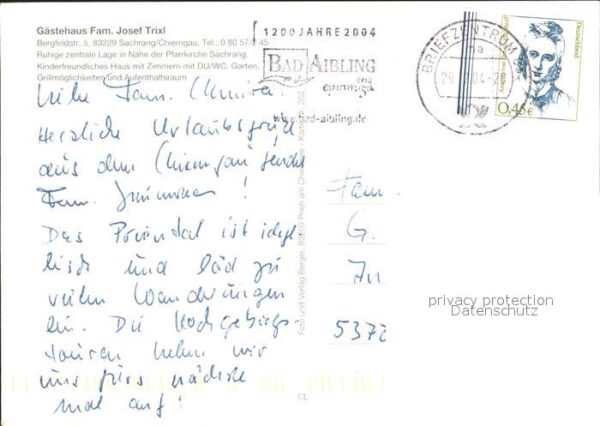 Gästehaus Fam. Josef Trixl
Bergfeldstr. 5, 83229 Sachrang/Chiemgau, Tel.: 0 80 57/2 45
Ruhige zentrale Lage in Nähe der Pfarrkirche Sachrang.
Kinderfreundliches Haus mit Zimmern mit DU/WC. Garten,
Grillmöglichkeiten und Aufenthaltsraum
1200 JAHRE 2004
BAD AIBLING
www.bad-aibling.de
BRIEFZENTRUM
Deutschland
0,45€
Liebe Fam.
Herzliche Urlaubsgrüße
aus dem Chiemgau sendet
Fam.
Das Prienthal ist idyl
lisch und läd zu
vielen Wanderungen
ein. Die Hochgebirgs-
touren heben wir
uns fürs nächste
mal auf!
Fam.
G.
537
Foto und Verlag Berger, 83209 Prien am Chiemsee
CL
privacy protection
Datenschutz